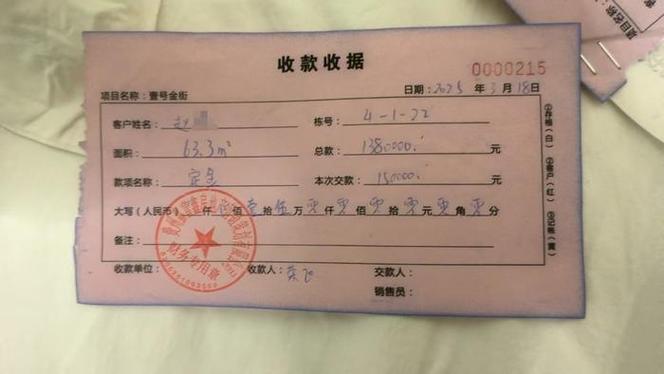 收款收据
0000215
项目名称：壹号金街 日期：2025年3月18日
客户姓名：赵 栋号：4-1-22
面积：63.3m² 总款：1380000.元
款项名称：定金 本次交款：150000.元
大写（人民币） 仟 佰壹拾伍万零仟零佰零拾零元零角零分
备注：
收款单位： 收款人： 交款人：
销售员：
①存根（白） ②客户（红） ③记帐（黄）
财务专用章
项目名称